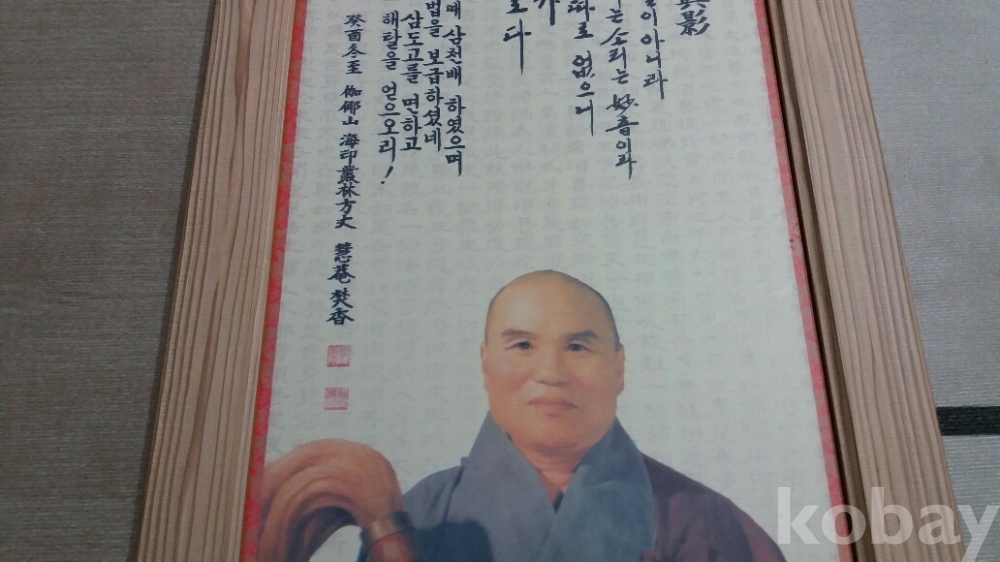 影
아니라
소리는 妙音이라
따로 없으니
로다
삼천배 하였으며
법을 보급하셨네
삼도고를 면하고
해탈을 얻으오리!
癸酉冬至 伽倻山 海印叢林方丈 慧菴 焚香
kobay